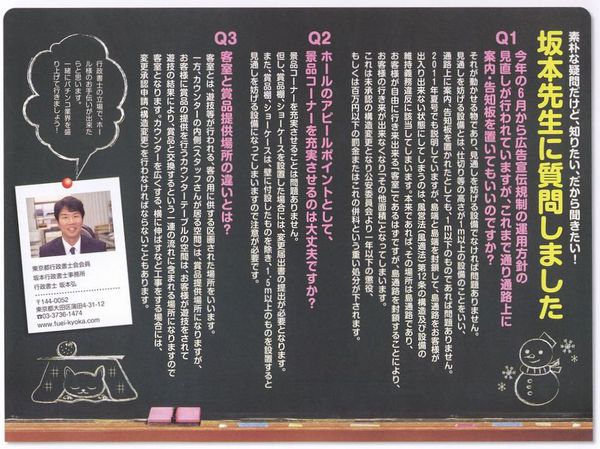 素朴な疑問だけど、知りたい、だから聞きたい！
坂本先生に質問しました
Q1
今年の6月から広告宣伝規制の運用方針の
見直しが行われていますが、これまで通り通路上に
案内・告知板を置いてもいいのですか？
それが動かせる物であり、見通しを妨げる設備でなければ問題ありません。
見通しを妨げる設備とは、仕切り等の高さが1m以上の設備のことをいい、
通路上に案内、告知板を置かれたとしても、1m以下のものであれば問題ありません。
出入り出来ない状態にしてしまうのは、風営法（風適法）第9条の構造及び設備の
維持義務違反に該当してしまいます。本来であれば、その場所は島通路であり、
お客様が自由に行き来出来る「客室」であるはずですが、島通路を封鎖することにより、
お客様の行き来が出来なくなり「その他面積」となってしまいます。
これは未承認の構造変更となり公安委員会より一年以下の懲役、
もしくは百万円以下の罰金またはこれの併科という重い処分が下されます。
Q2
ホールのアピールポイントとして、
景品コーナーを充実させるのは大丈夫ですか？
景品コーナーを充実させることは問題ありません。
但し、賞品棚、ショーケースを設置した場合には、変更届出書の提出が必要となります。
また、賞品棚、ショーケースは、壁に設付したものを除き、1.5m以上のものを設置すると
見通しを妨げる設備になってしまいますので注意が必要です。
Q3
客室と賞品提供場所の違いとは？
客室とは、遊技等が行われる、客の用に供する区画された場所をいいます。
一方、カウンターの内側（スタッフさんが居る空間）は、賞品提供場所になりますが、
お客様に賞品の提供を行うカウンターテーブルの空間は、お客様が遊技をされて
遊技の結果により、賞品と交換するという一連の流れに含まれる場所になりますので
客室となります。カウンターを広くする、横に伸ばすなど工事をする場合には、
変更承認申請（構造変更）を行わなければならないこともあります。
行政書士の立場で、ホー
ル様のお手伝いが出来た
らと思います。
一緒にパチンコ業界を盛
り上げて行きましょう！
東京都行政書士会会員
坂本行政書士事務所
行政書士 坂本弘
〒144-0052
東京都大田区蒲田4-31-12
☎03-3736-1474
www.fuei-kyoka.com